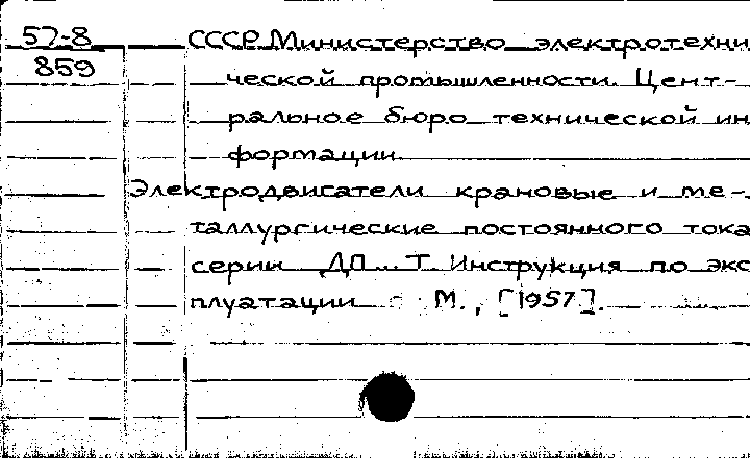 57-8
859
СССР. Министерство электротехни
ческой промышленности. Цент-
ральное бюро технической ин
формации.
Электродвигатели крановые и ме-
таллургические постоянного тока
серии ДП...Т. Инструкция по экс
плуатации М., [1957].